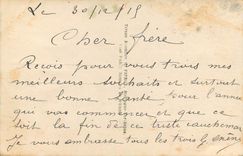 Le 30/12/15
Cher frère
Reçois pour vous trois mes
meilleurs souhaits et surtout
une bonne santé pour l'anné
qui vas commencer et que ce
soit la fin de ce triste cauchemar
Je vous embrasse tous les trois